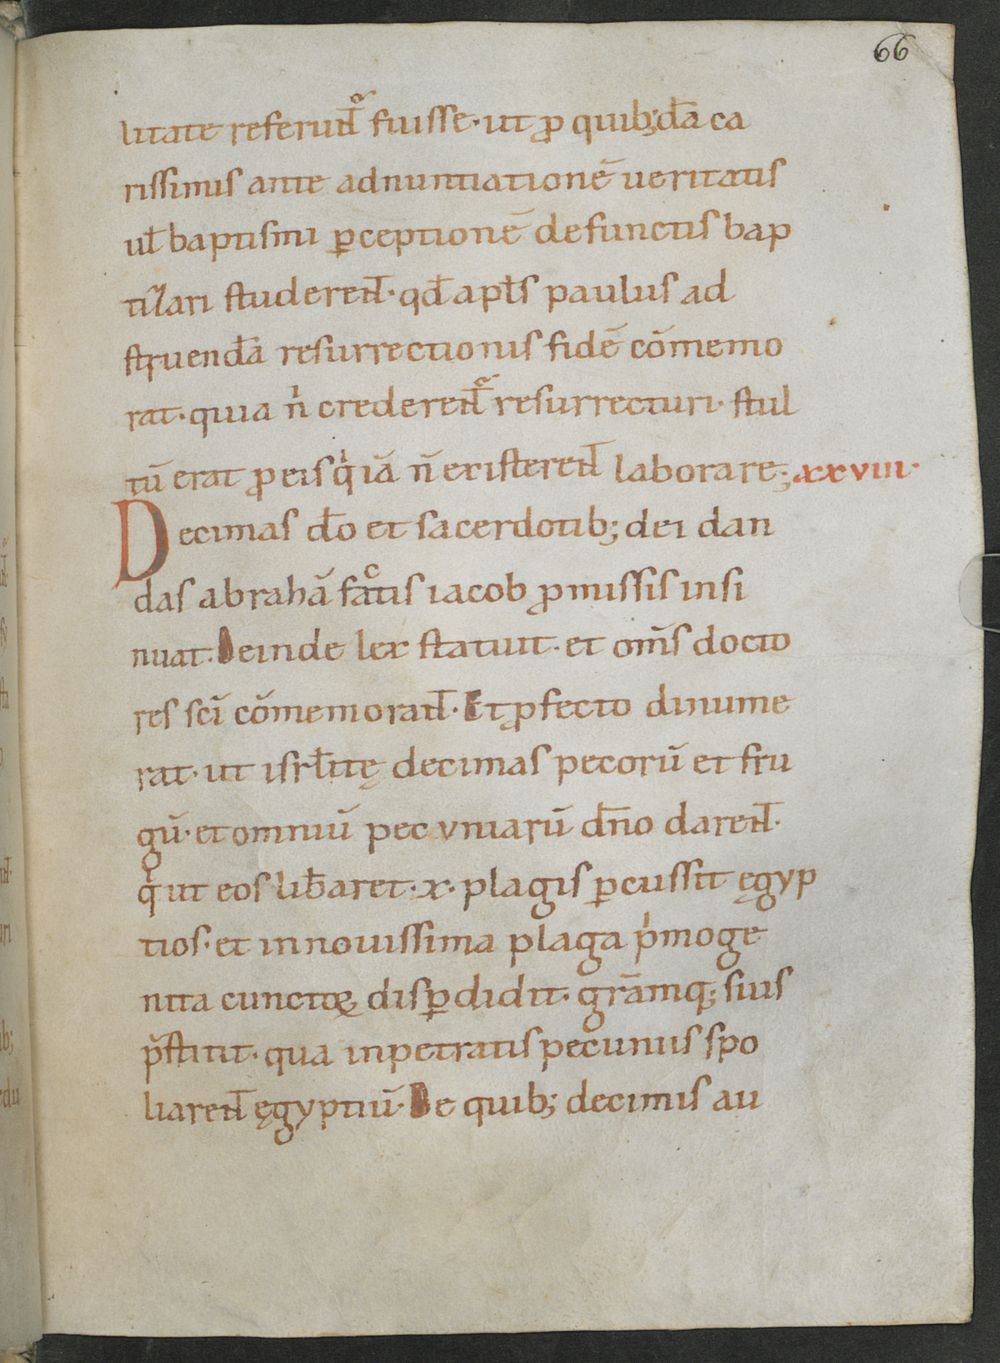 66
litate referunt̄ᵃ fuisse· ut ꝓ quib;dā ca
rissimis ante adnuntiationē ueritatis
ul̄ baptismi ꝑceptionē defunctis bap
tizari studerent̄· qd̄ apl̄s paulus ad
struendā resurrectionis fidē cōmemo
rat· quia n̄ crederent̄ᵃ resurrecturi· stul
tū erat ꝓ eis qͥ iā n̄ existerent̄ laborare; xxviii·
Decimas dō et sacerdotib; dei dan
das abrahā factis iacob ꝓmissis insi
nuat· Deinde lex statuit· et om̄s docto
res sc̄i cōmemorant̄· Et ꝓfecto dinume
rat· ut isrl̄itę decimas pecorū et fru
gū· et omniū pecuniarū dn̄o darent̄·
qͥ ut eos lib̄aret· x· plagis ꝑcussit ęgyp
tios· et in nouissima plaga pͥmoge
nita cunctoꝝ disꝑdidit· grāḿq; suis
p̄stitit· qua inpetratis pecuniis spo
liarent̄ ęgyptiū· De quib; decimis au